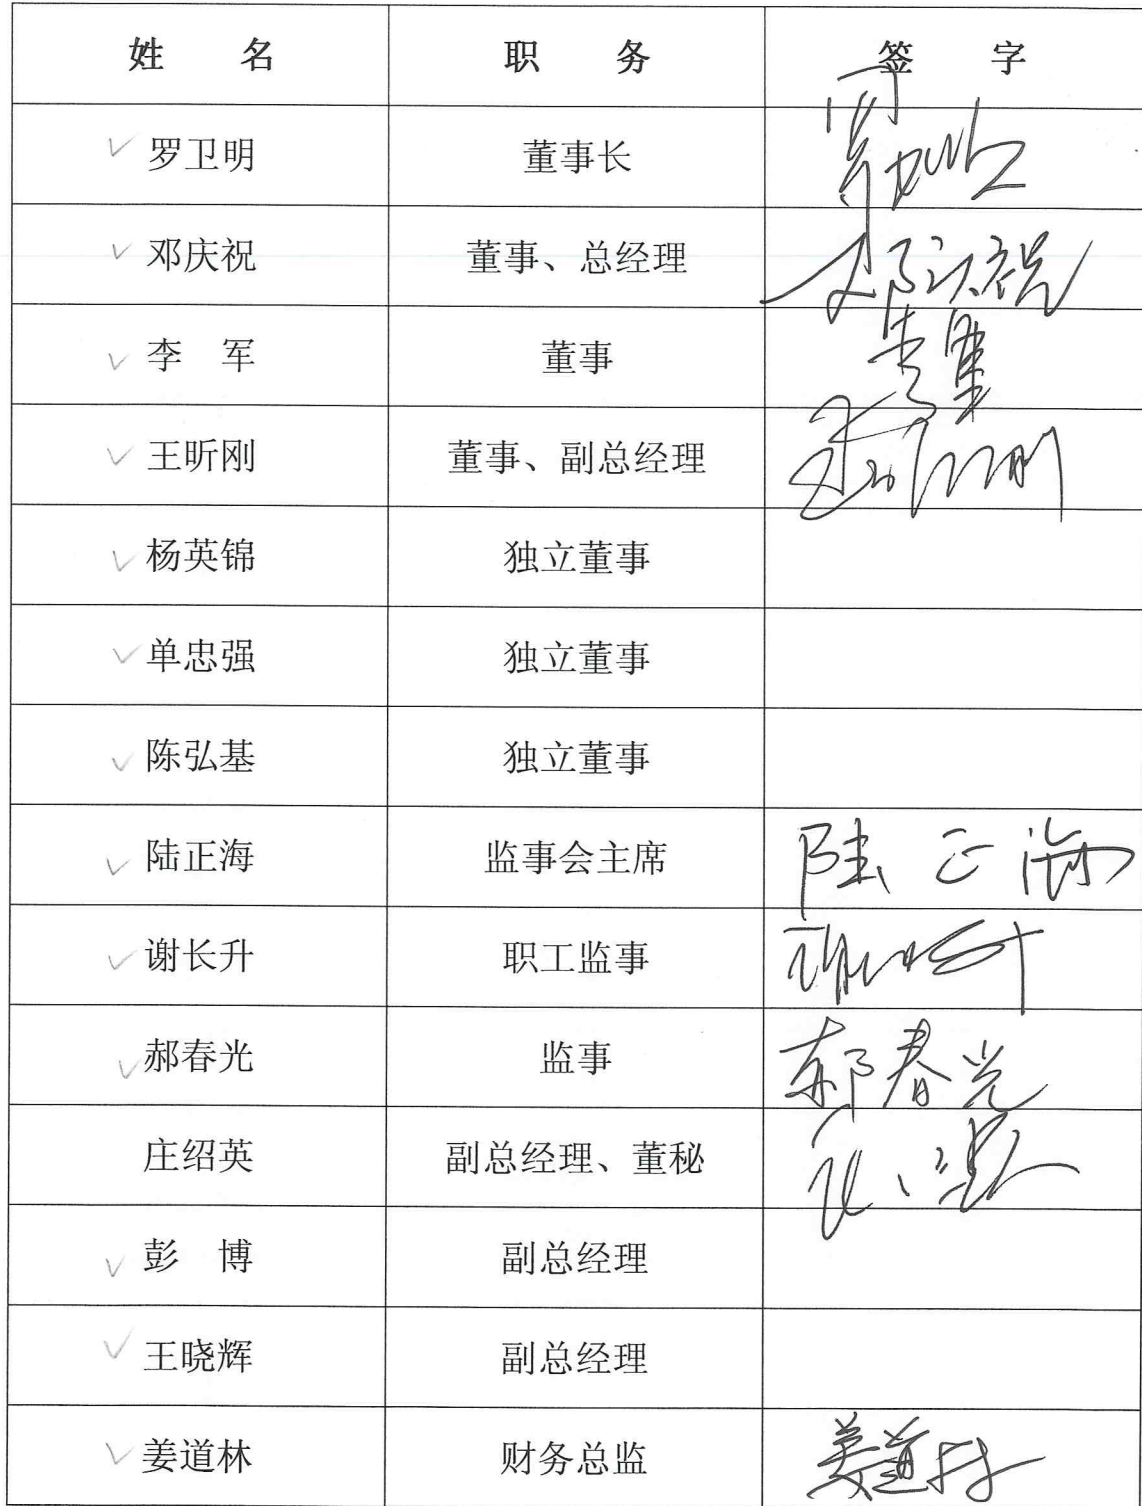 姓 名 职 务 签 字
罗卫明 董事长
邓庆祝 董事、总经理 邓庆祝
李 军 董事 李军
王昕刚 董事、副总经理
杨英锦 独立董事
单忠强 独立董事
陈弘基 独立董事
陆正海 监事会主席 陆正海
谢长升 职工监事
郝春光 监事 郝春光
庄绍英 副总经理、董秘
彭 博 副总经理
王晓辉 副总经理
姜道林 财务总监 姜道林